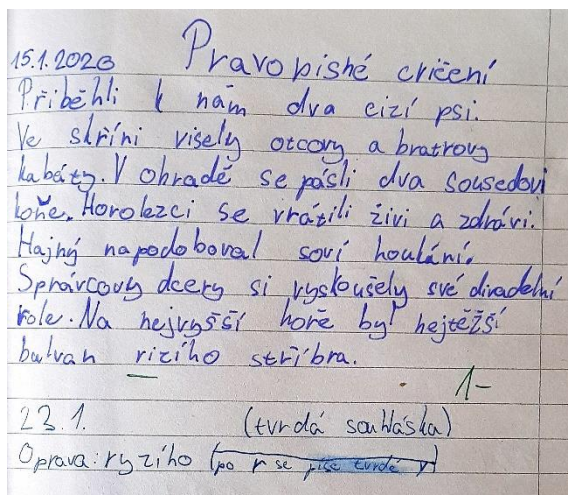 15.1.2020 Pravopisné cvičení
Přiběhli k nám dva cizí psi.
Ve skříni visely otcovy a bratrovy
kabáty. V ohradě se pásli dva sousedovi
koně. Horolezci se vrátili živi a zdrávi.
Hajný napodoboval soví houkání.
Správcovy dcery si vyskoušely své divadelní
role. Na nejvyšší hoře byl nejtěžší
balvan rizího stříbra.
1-
23.1. (tvrdá souhláska)
Oprava: ryzího (po r se píše tvrdé y)